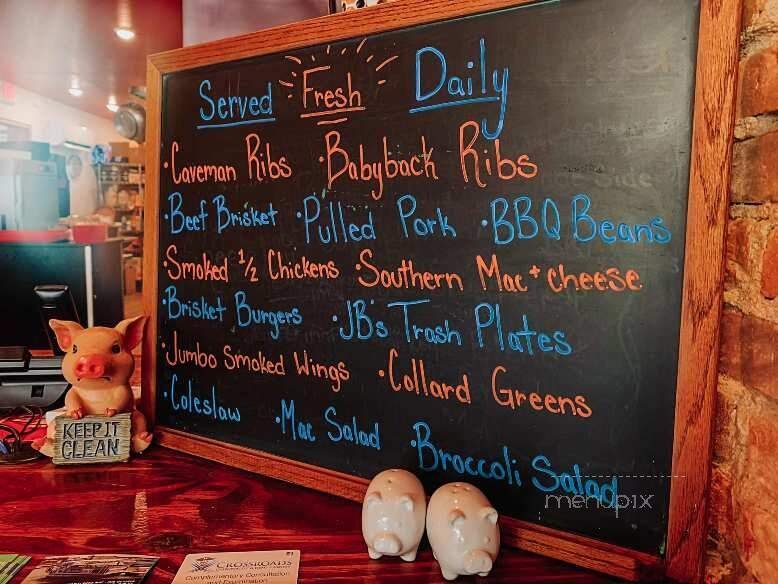 Served Fresh Daily
· Caveman Ribs · Babyback Ribs
· Beef Brisket · Pulled Pork · BBQ Beans
· Smoked 1/2 Chickens · Southern Mac + Cheese
· Brisket Burgers · JB's Trash Plates
· Jumbo Smoked Wings · Collard Greens
· Coleslaw · Mac Salad · Broccoli Salad
KEEP IT
CLEAN
menupix
CROSSROADS
Complimentary Consultation
and Examination